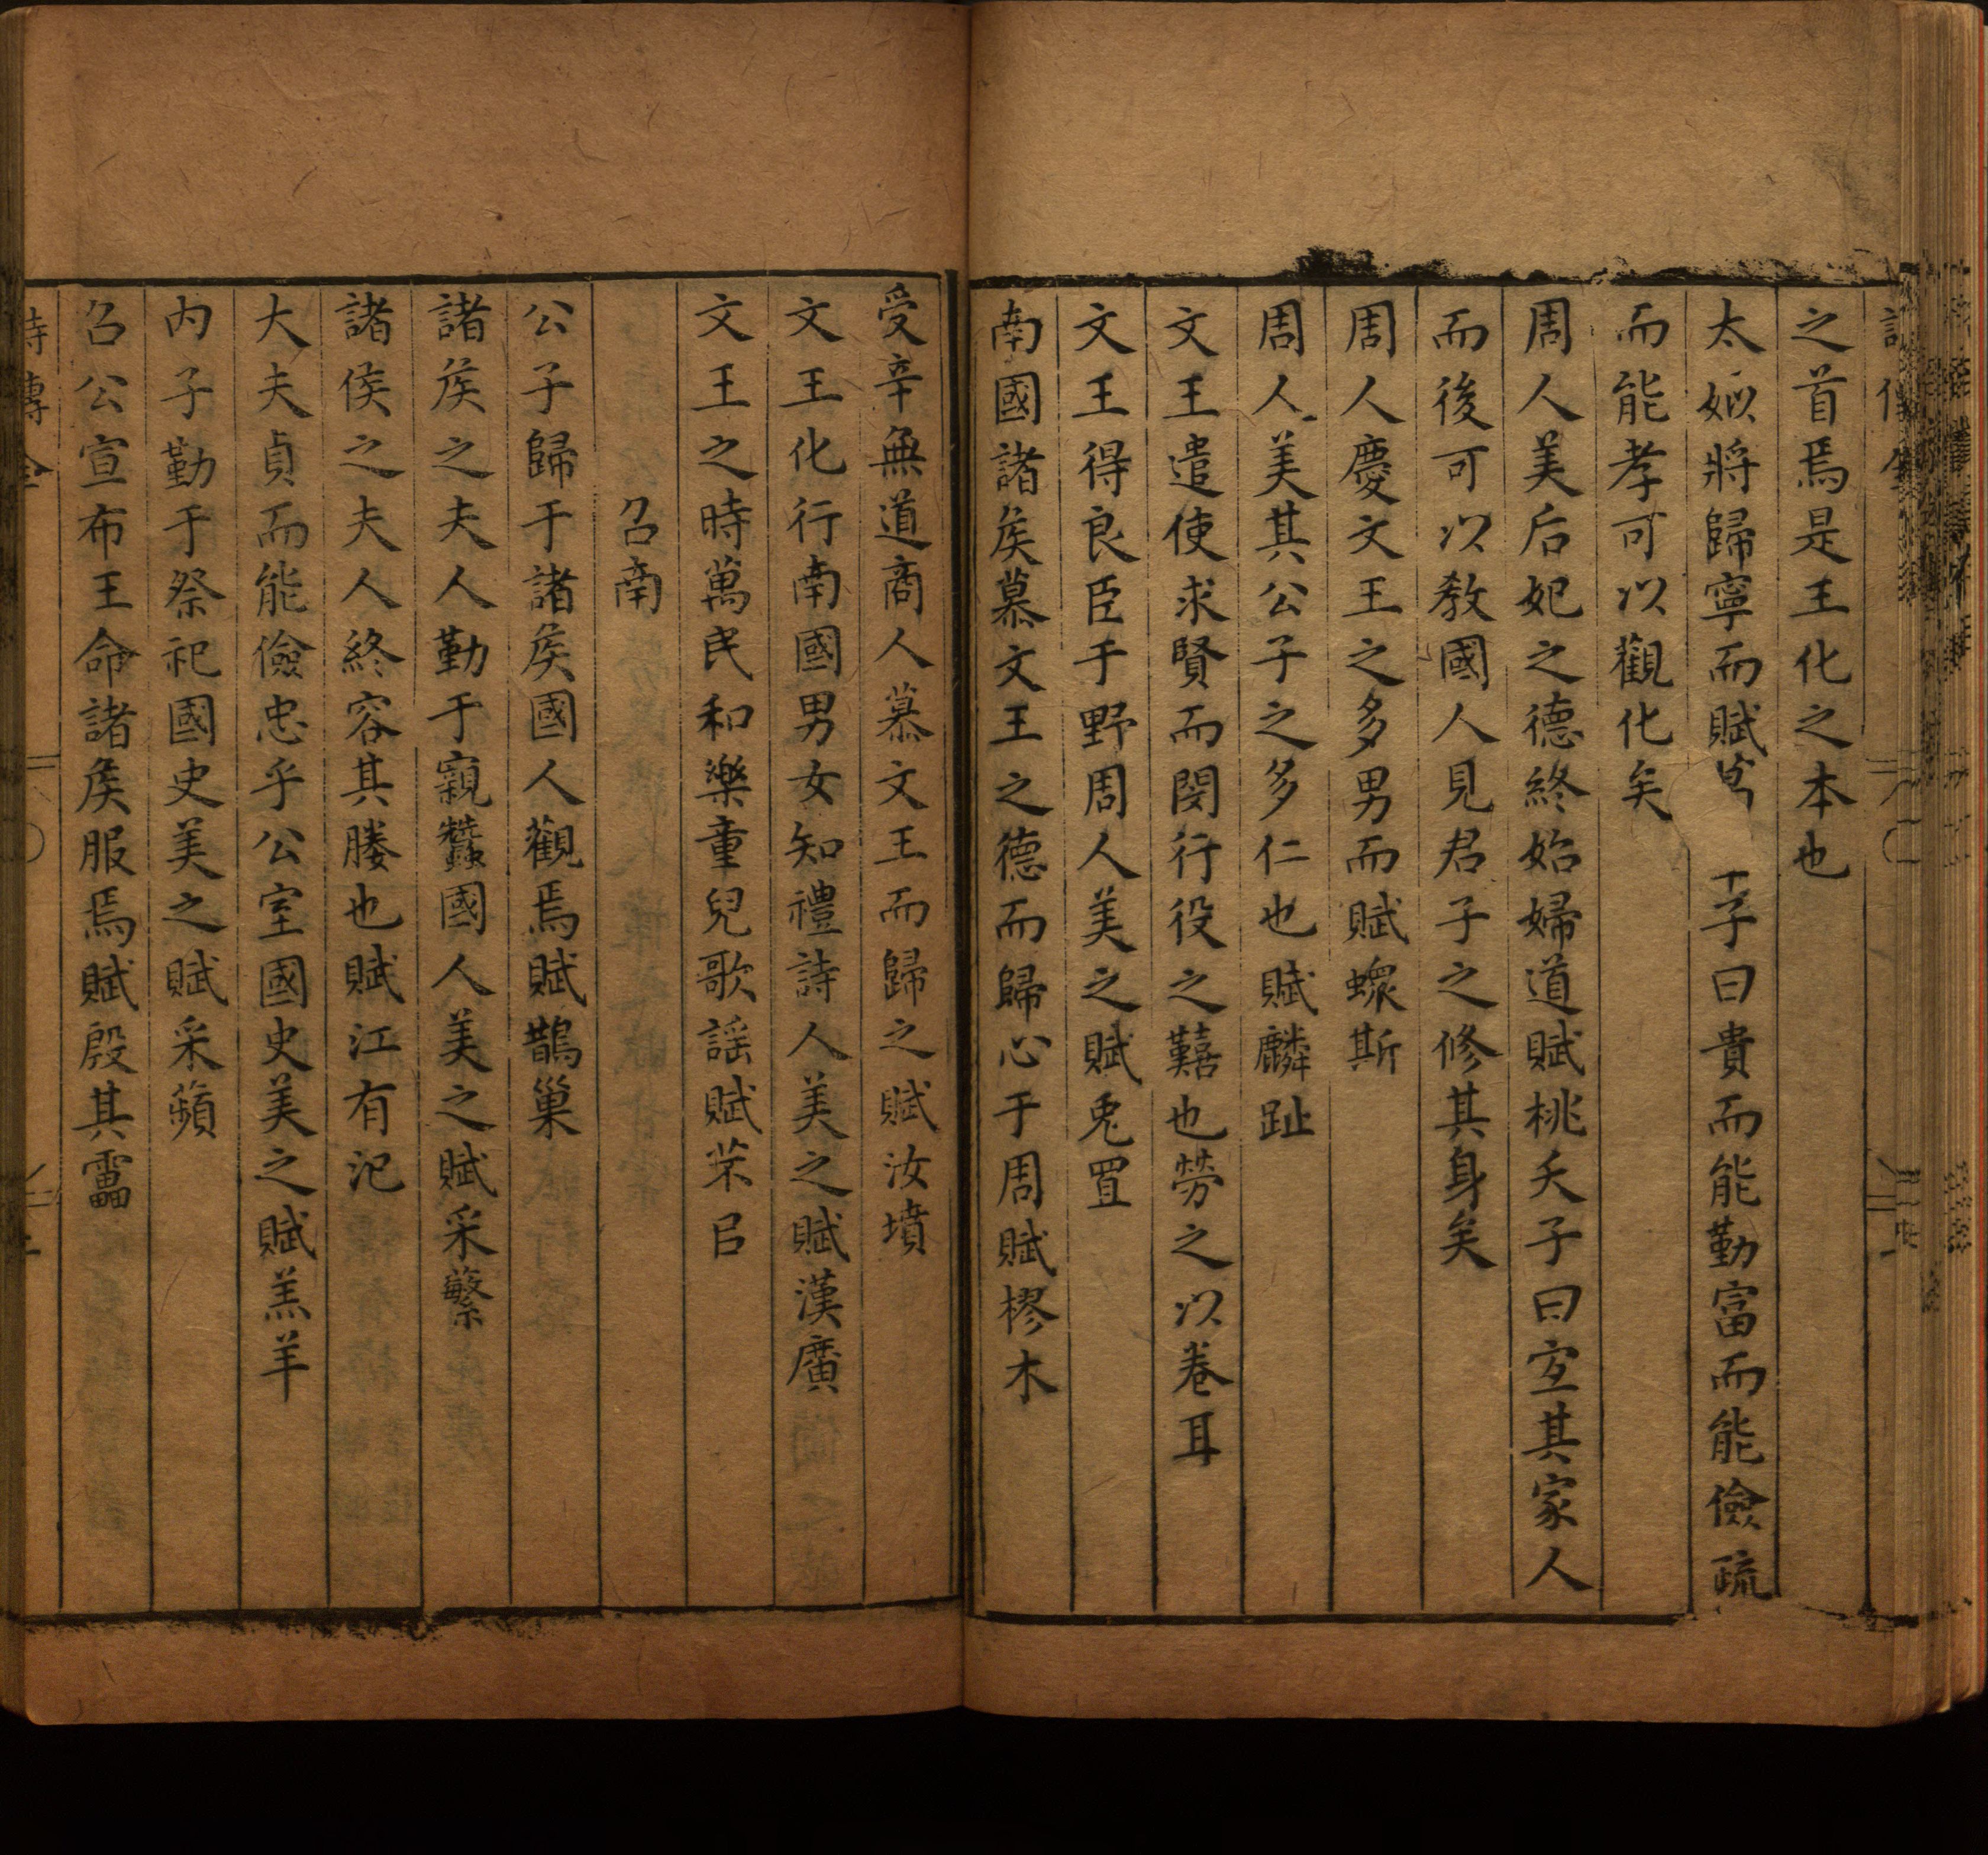 之首焉是王化之本也
太姒將歸寧而賦葛 子曰貴而能勤富而能儉疏
而能孝可以觀化矣
周人美后妃之德終始婦道賦桃夭子曰宐其家人
而後可以敎國人見君子之修其身矣
周人慶文王之多男而賦螽斯
周人美其公子之多仁也賦麟趾
文王遣使求賢而閔行役之囏也勞之以卷耳
文王得良臣于野周人美之賦兎罝
南國諸矦慕文王之德而歸心于周賦樛木
受辛無道商人慕文王而歸之賦汝墳
文王化行南國男女知禮詩人美之賦漢廣
文王之時萬民和樂童兒歌謡賦芣㠯
召南
公子歸于諸矦國人觀焉賦鵲巢
諸矦之夫人勤于親蠶國人美之賦采蘩
諸侯之夫人終容其媵也賦江有汜
大夫貞而能儉忠乎公室國史美之賦羔羊
内子勤于祭祀國史美之賦采蘋
召公宣布王命諸矦服焉賦殷其靁